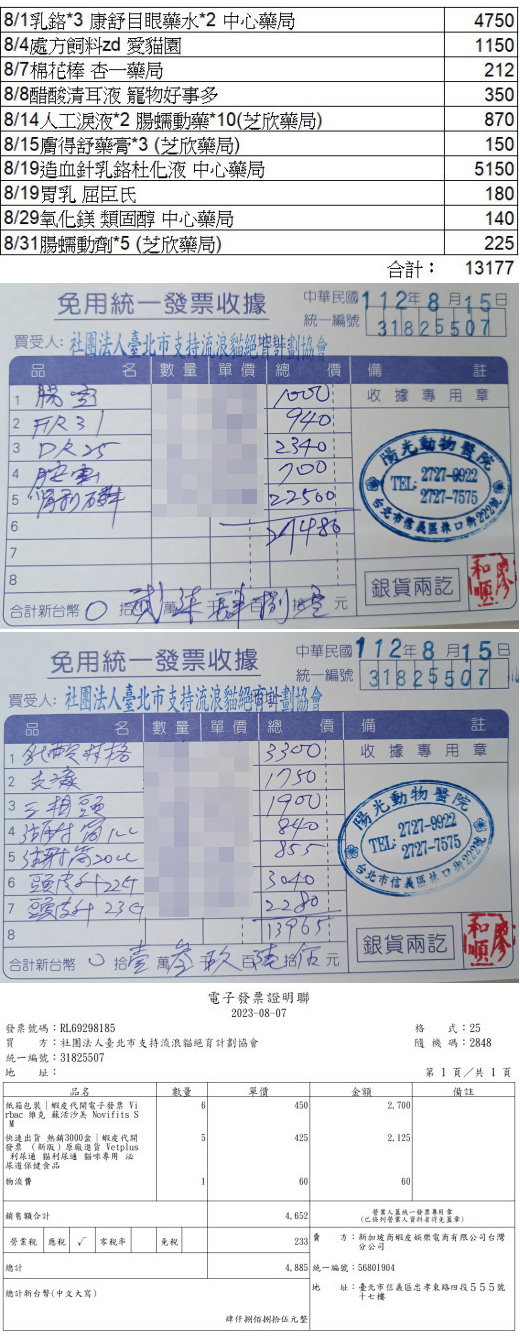 8/1乳鉻*3 康舒目眼藥水*2 中心藥局 4750
8/4處方飼料zd 愛貓園 1150
8/7棉花棒 杏一藥局 212
8/8醋酸清耳液 寵物好事多 350
8/14人工淚液*2 腸蠕動藥*10(芝欣藥局) 870
8/15膚得舒藥膏*3 (芝欣藥局) 150
8/19造血針乳鉻杜化液 中心藥局 5150
8/19胃乳 屈臣氏 180
8/29氧化鎂 類固醇 中心藥局 140
8/31腸蠕動劑*5 (芝欣藥局) 225
合計： 13177
免用統一發票收據
中華民國112年8月15日
統一編號 31825507
買受人: 社團法人臺北市支持流浪貓絕育計劃協會
品名 數量 單價 總價 備註
收據專用章
1 1000
2 940
3 2340
4 700
5 22500
6 27480
7
8
陽光動物醫院
TEL: 2727-9922
2727-7575
台北市信義區林口街222號
銀貨兩訖
廖和順
合計新台幣 0 拾貳萬柒仟肆百捌拾零元
免用統一發票收據
中華民國112年8月15日
統一編號 31825507
買受人: 社團法人臺北市支持流浪貓絕育計劃協會
品名 數量 單價 總價 備註
收據專用章
1 3300
2 1750
3 三相頭 1900
4 注射筒1cc 840
5 注射筒20cc 855
6 頭皮針22G 3040
7 頭皮針23G 2280
8 13965
陽光動物醫院
TEL: 2727-9922
2727-7575
台北市信義區林口街222號
銀貨兩訖
廖和順
合計新台幣 0 拾壹萬參仟玖百陸拾伍元
電子發票證明聯
2023-08-07
發票號碼：RL69298185 格 式：25
買 方：社團法人臺北市支持流浪貓絕育計劃協會 隨 機 碼：2848
統一編號：31825507
地 址： 第 1 頁／共 1 頁
品名 數量 單價 金額 備註
紙箱包裝｜蝦皮代開電子發票 Vi 6 450 2,700
rbac 維克 蘇活沙美 Novifits S
M
快速出貨 熱銷3000盒｜蝦皮代開 5 425 2,125
發票 (新版)原廠進貨 Vetplus
利尿通 貓利尿通 貓咪專用 泌
尿道保健食品
物流費 1 60 60
銷售額合計 4,652
營業人蓋統一發票專用章
(已條列營業人資料者得免蓋章)
營業稅 應稅 √ 零稅率 免稅 233
賣 方：新加坡商蝦皮娛樂電商有限公司台灣
分公司
總計 4,885
統一編號：56801904
地 址：臺北市信義區忠孝東路四段５５５號
十七樓
總計新台幣(中文大寫)
肆仟捌佰捌拾伍元整